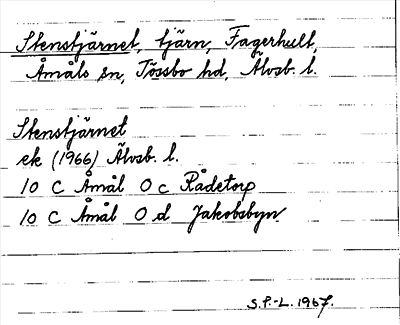 Stenstjärnet, tjärn, Fagerhult,
Åmåls sn, Tössbo hd, Älvsb. l.
Stenstjärnet
ek (1966) Älvsb. l.
10 C Åmål 0 c Rådetorp
10 C Åmål 0 d Jakobsbyn
S.P.-L. 1967.